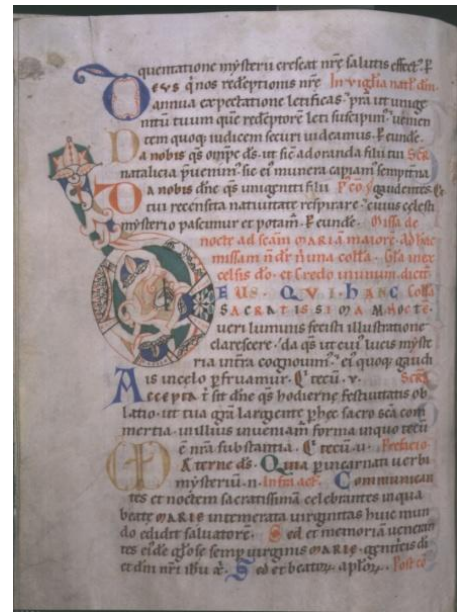 quentatione mysterii crescat nr̄e salutis effect᷒. P̄
Deus q̇ nos redēptionis nr̄e In vigł̄ia natł̄ dm̄.
annua expectatione letificas. p̄ra ut unige
nitū tuum quē redēptorē leti suscipim᷒. uenien
tem quoq̨ iudicem securi uideamus. P̄ eunde.
Da nobis q̄s om̄ps d̄s. ut sic̄ adoranda filii tui Secr̄.
natalicia p̄uenim᷒. sic ei᷒ munera capiam᷒ sempit̄na
Da nobis dn̄e q̄s unigeniti filii P̄ co. gaudentes.
tui recensita natiuitate respirare. cuius celesti
mysterio pascimur et potam᷒. P̄ eunde. Missa de
nocte ad sc̄am MARIĀ maiorē. Ad hac
missam n̄ dr̄ n̄ una coll̄a. Gł̄a in ex
celsis d̄o. et Credo in unum. dict̄
DEUS. QUI HANC Coll̄a
SACRATISSIMAM NOCTĒ.
ueri luminis fecisti illustratione
clarescere. da q̄s ut cui᷒ lucis myste
ria in t̄ra cognouim᷒. ei᷒ quoq̨ gaudi
is in celo p̄fruamur. Q̇ tecū. v. Secr̄.
Accepta t̄ sit dn̄e q̄s hodierne festiuitatis ob
latio. ut tua gr̄a largiente p̄ hec sacro sc̄a com
mertia. in illius inueniam᷒ forma in quo tecū
ē nr̄a substantia. Q̇ tecū. u. Prefacio.
Æterne d̄s. Quia p̄ incarnati uerbi
mysteriū. n. Infra act̄. Communican
tes et noctem sacratissimā celebrantes in qua
beatę MARIE intemerata uirginitas huic mun
do edidit saluatorē. Sed et memoriā ueneran
tes eiꝰdē gł̄ose semp̄ uirginis MARIE. genitricis di
et dn̄i nr̄i ihu x̄. Sed et beator̨. apłor̨. Post cō